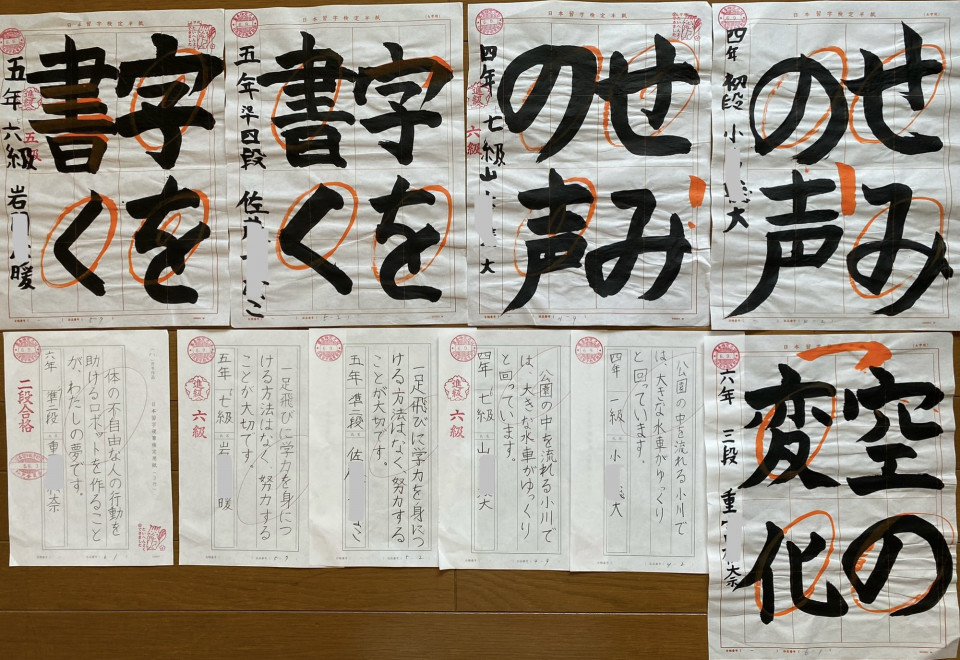 日本習字検定半紙
字を
書く
五年 六級 岩 暖
進級 五級
字を
書く
五年 準四段 佐 こ
日本習字検定半紙
せみ
の声
四年 七級 山 大
進級 六級
日本習字検定半紙
せみ
の声
四年 初段 小 大
体の不自由な人の行動を
助けるロボットを作ること
が、わたしの夢です。
六年 準二段 重 奈
二段合格
一足飛びに学力を身につ
ける方法はなく、努力する
ことが大切です。
五年 七級 岩 暖
進級 六級
一足飛びに学力を身につ
ける方法はなく、努力する
ことが大切です。
五年 準二段 佐 さ
公園の中を流れる小川で
は、大きな水車がゆっくり
と回っています。
四年 七級 山 大
進級 六級
公園の中を流れる小川で
は、大きな水車がゆっくり
と回っています。
四年 一級 小 大
空の
変化
六年 三段 重 奈